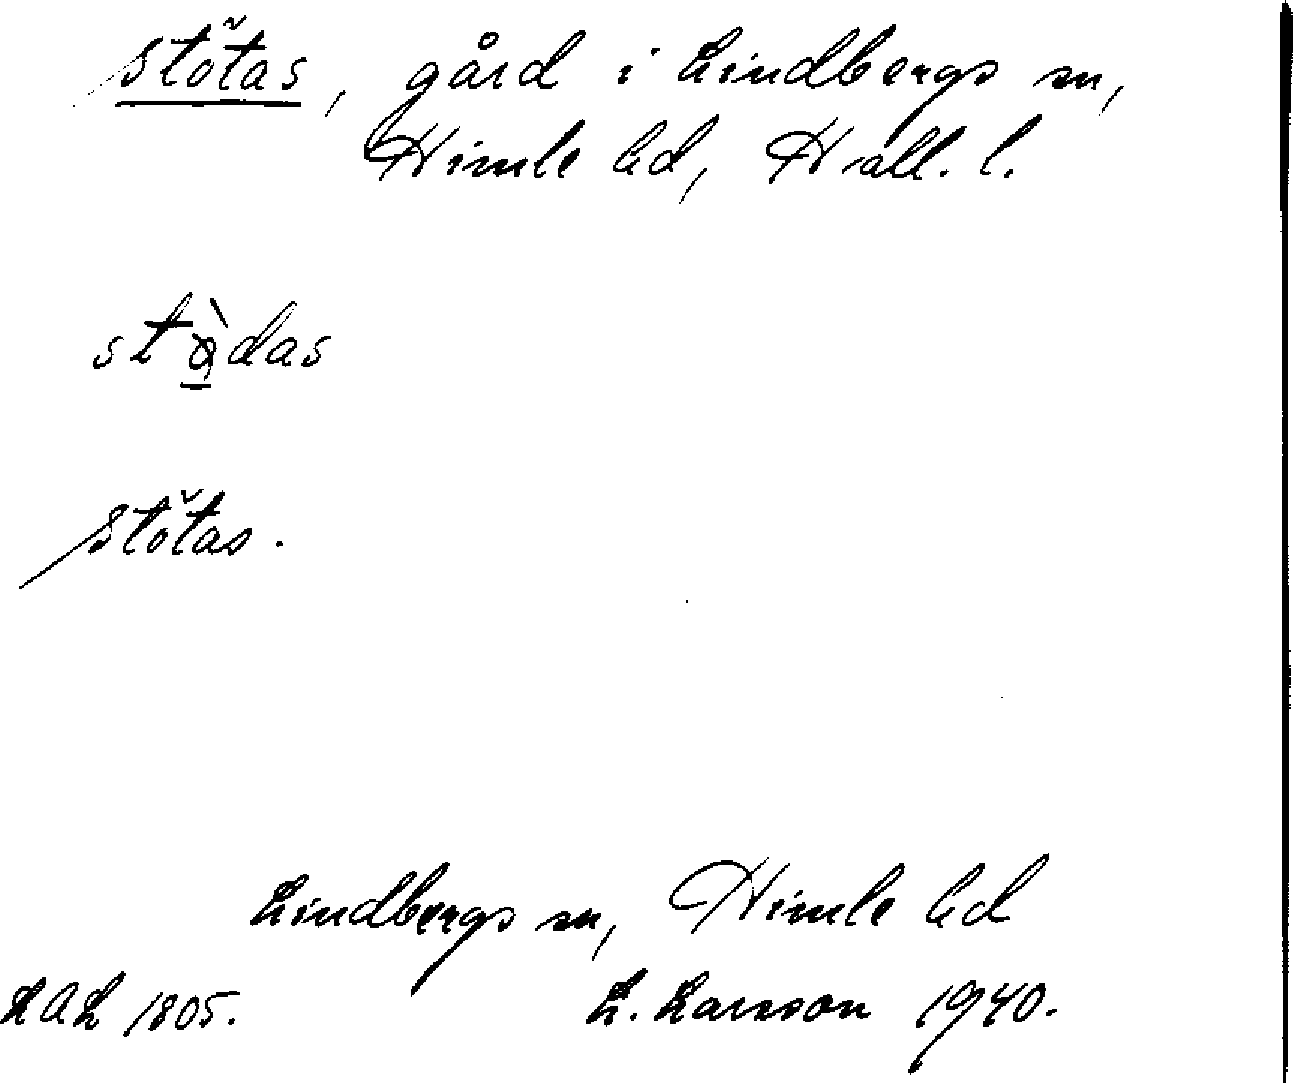 stŏtas, gård i Lindbergs sn,
Himle hd, Hall. l.
stọ̀das
stŏtas.
Lindbergs sn, Himle hd
LAL 1805.
L. Larsson 1940.